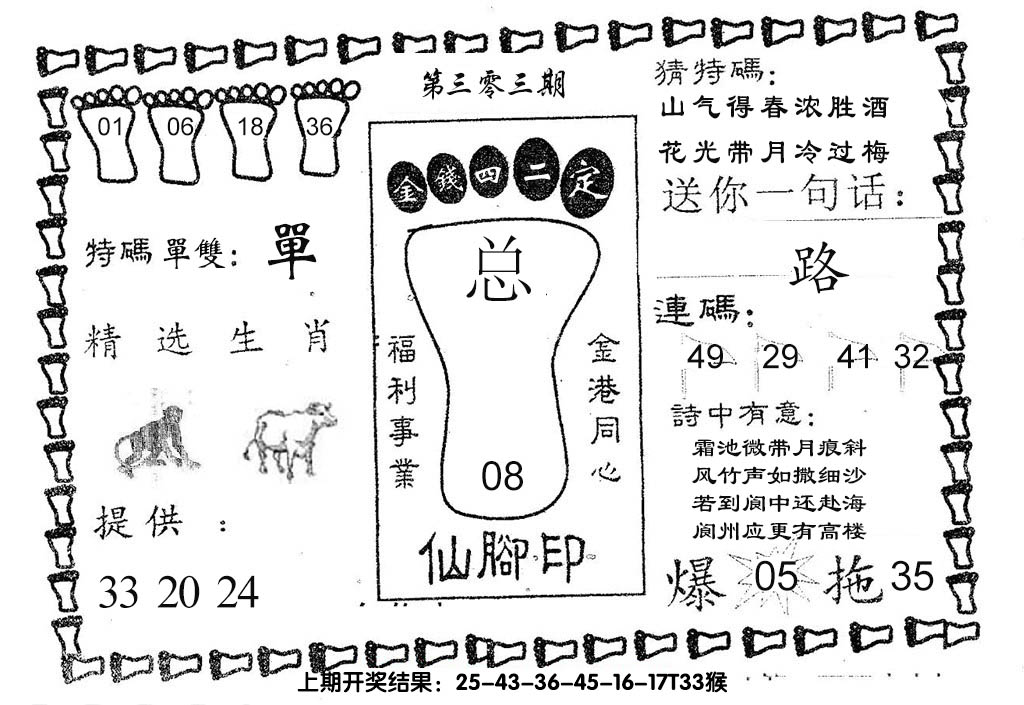 第三零三期
01 06 18 36
特碼單雙: 單
精选生肖
提供:
33 20 24
金錢四二定
总
福利事業
金港同心
08
仙腳印
猜特碼:
山气得春浓胜酒
花光带月冷过梅
送你一句话:
路
連碼:
49 29 41 32
詩中有意:
霜池微带月痕斜
风竹声如撒细沙
若到阆中还赴海
阆州应更有高楼
爆 05 拖 35
上期开奖结果: 25-43-36-45-16-17T33猴